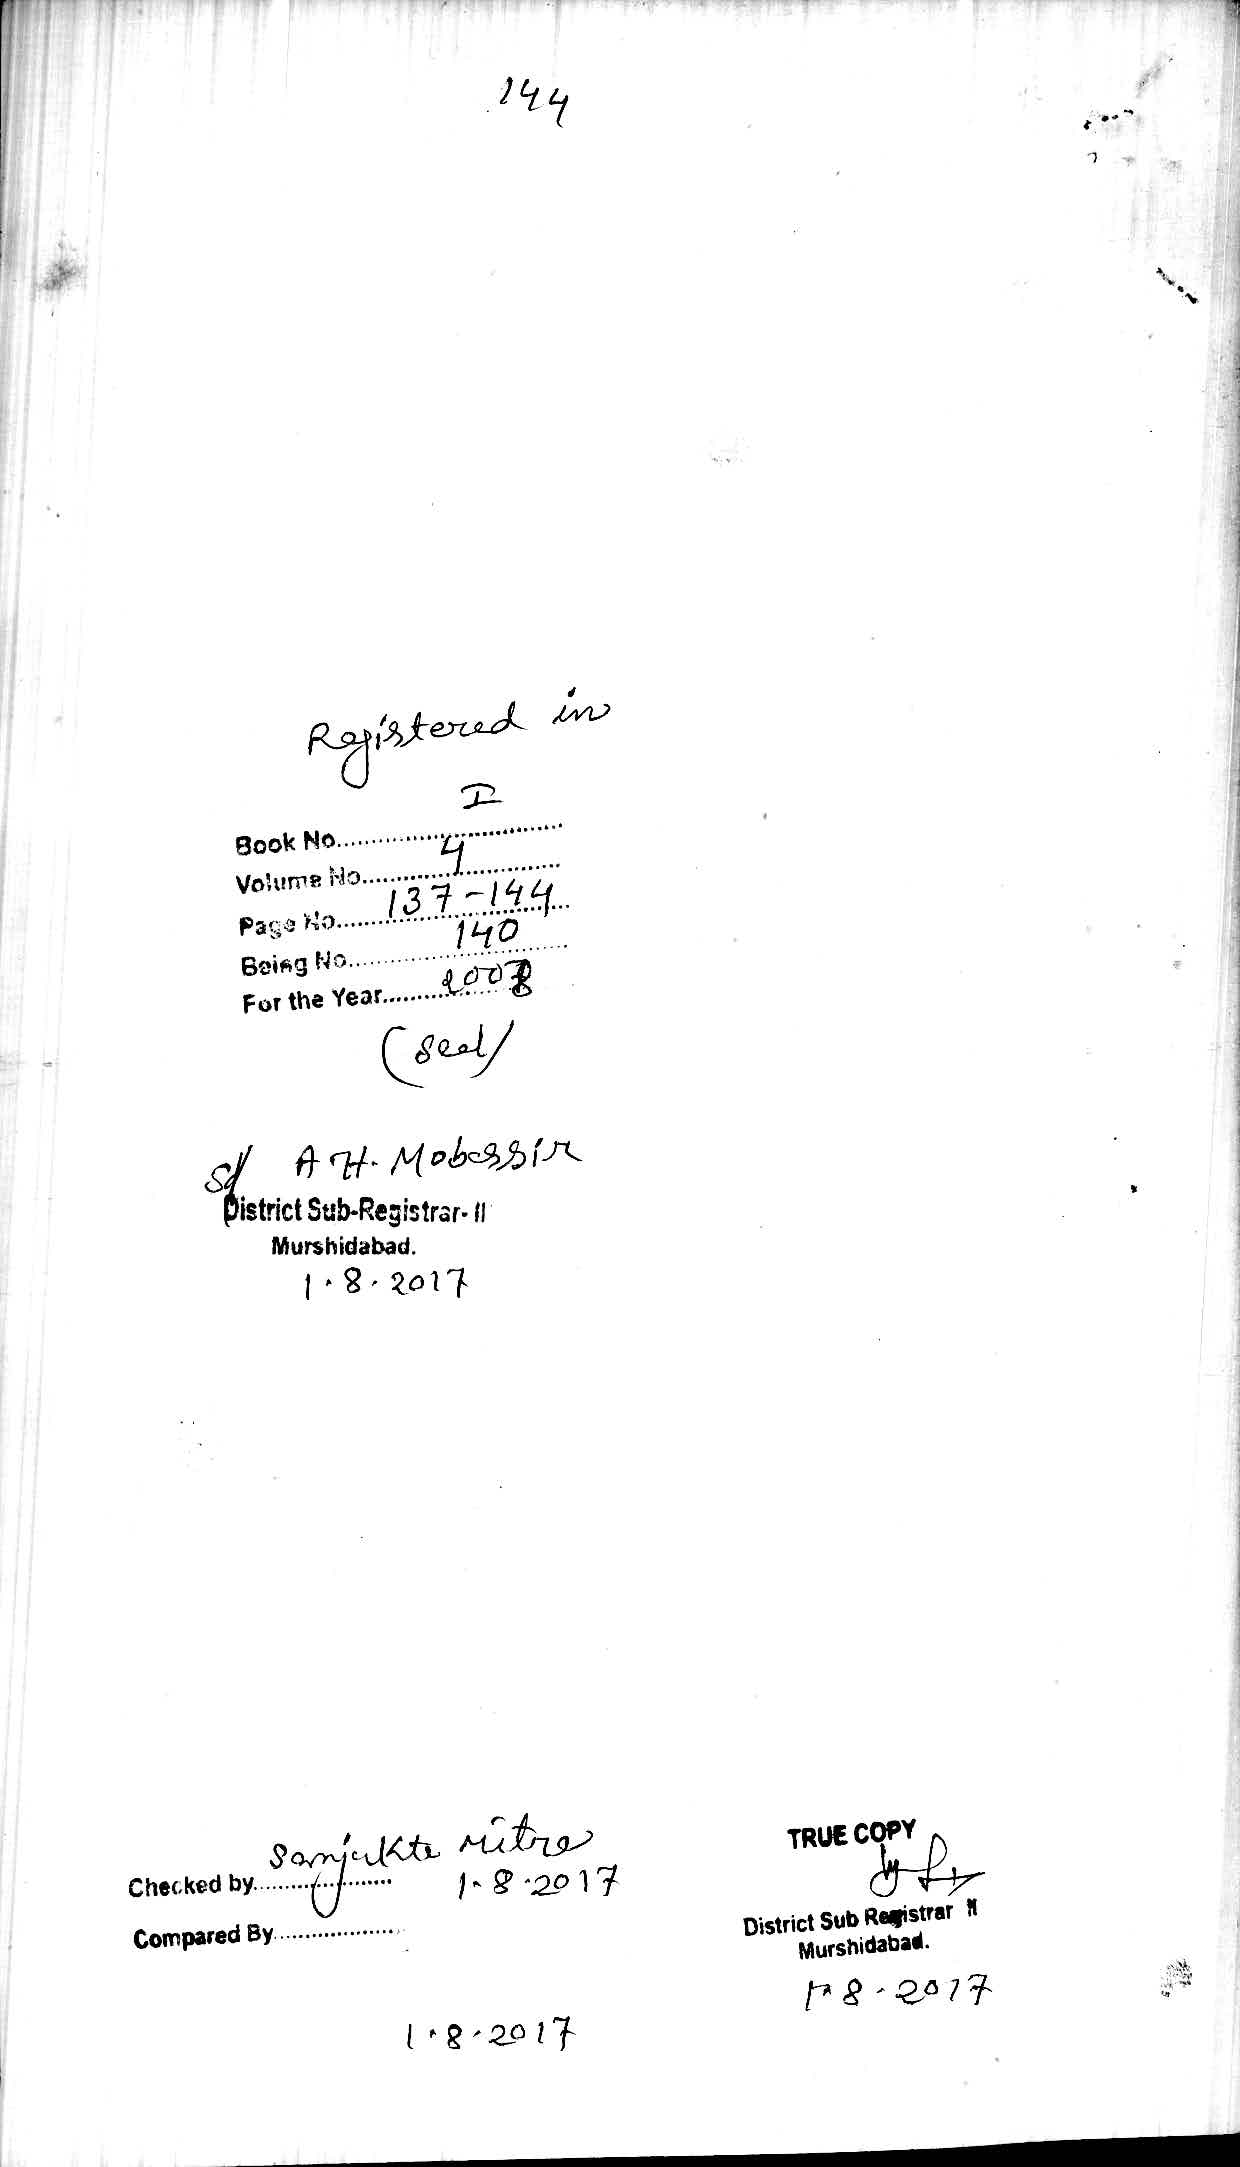 144
Registered in
Book No. I
Volume No. 4
Page No. 137-144
Being No. 140
For the Year
(Seal)
Sd/ A H. Mobassir
District Sub-Registrar- II
Murshidabad.
1.8.2017
Checked by Sanjukta Mitra
1.8.2017
Compared By
1.8.2017
TRUE COPY
District Sub Registrar II
Murshidabad.
1.8.2017